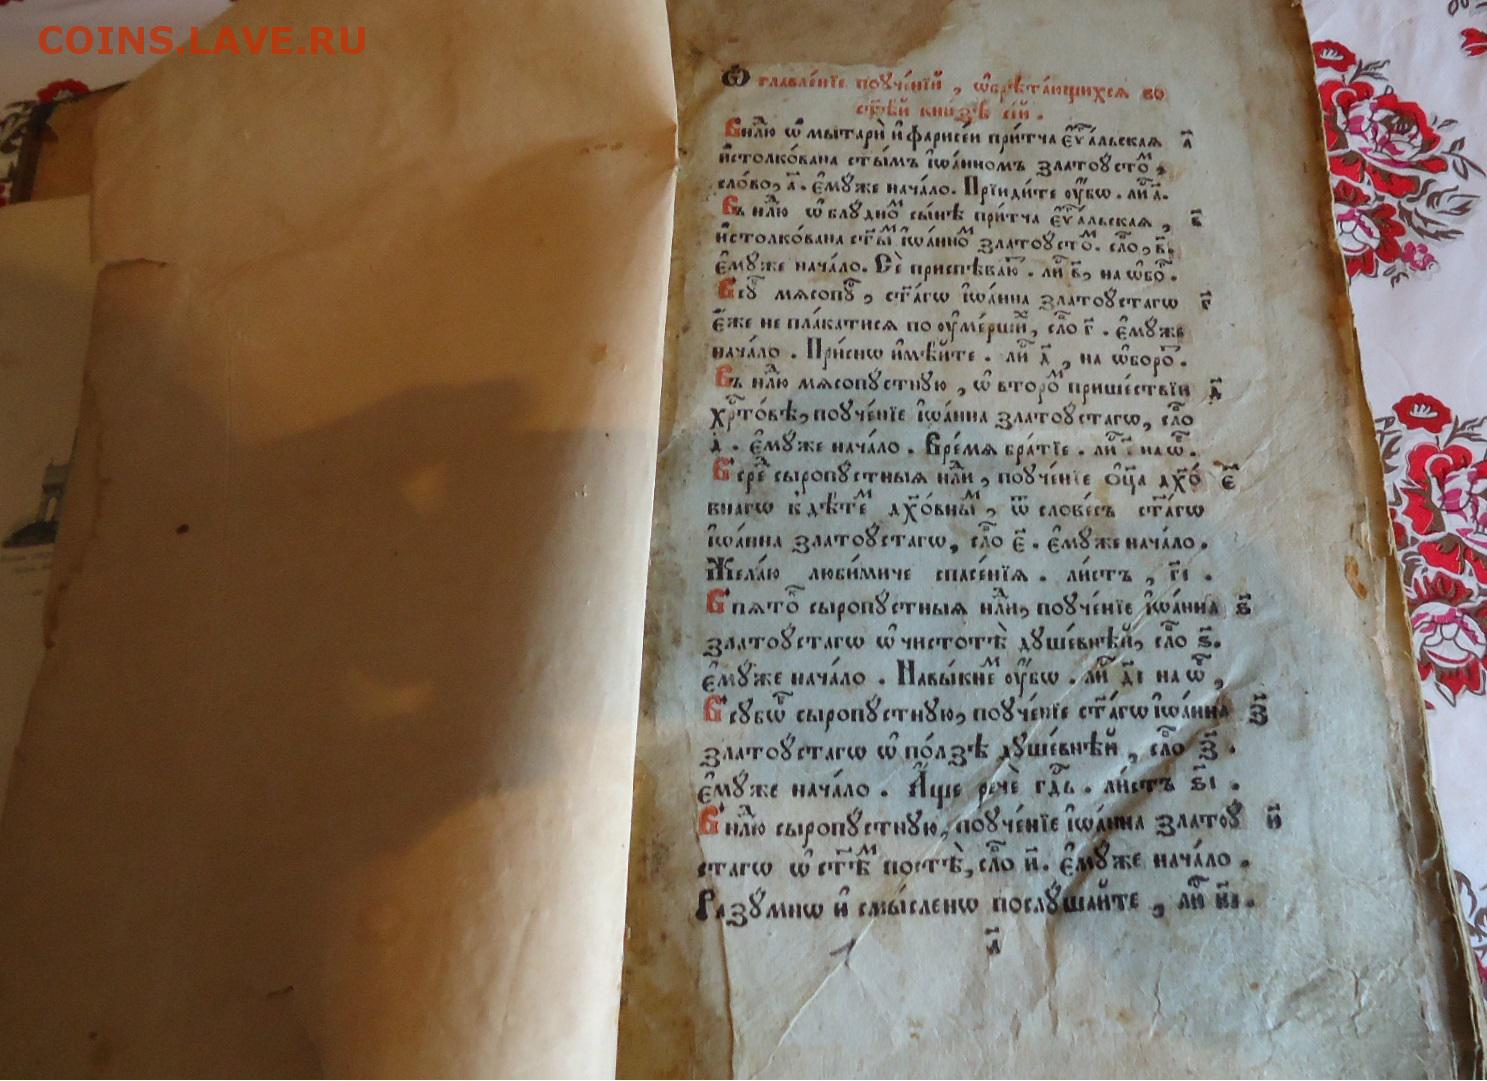 COINS.LAVE.RU
Ѽглавле́нїе поуче́нїй, ѡ҆брѣта́ющихсѧ во
ст҃ѣ́й кни́зѣ сі́й.
В нлⷣю ѡ҆ мытарѝ и҆ фарисе́и при́тча є҆ѵⷢ҇а́льскаѧ а҃
и҆столко́вана ст҃ы́мъ і҆ѡа́нномъ златоусто́ⷨ,
сло́во, а҃. є҆му́же нача́ло. Прїиди́те ᲂу҆́бѡ. лиⷭ҇ а҃.
Въ нлⷣю ѡ҆ блу́дноⷨ сы́нѣ при́тча є҆ѵⷢ҇а́льскаѧ, в҃
и҆столко́вана ст҃ы́ⷨ і҆ѡа́нноⷨ златоусто́ⷨ. сло, в҃.
є҆му́же нача́ло. Сѐ приспѣва́ю. лиⷭ҇ в҃, на ѡ҆боⷬ҇.
В суⷠ҇ мѧсопуⷭ҇, ст҃а́гѡ і҆ѡа́нна златоу́стагѡ г҃
є҆́же не пла́катисѧ по ᲂу҆ме́ршиⷯ, сло г҃. є҆му́же
нача́ло. При́снѡ и҆мѣ́йте. лиⷭ҇ д҃, на ѡ҆бороⷮ.
Въ нлⷣю мѧсопу́стную, ѡ҆ второ́ⷨ прише́ствїи д҃
хрⷭ҇то́вѣ, поуче́нїе і҆ѡа́нна златоу́стагѡ, сло
д҃. є҆му́же нача́ло. Вре́мѧ бра́тїе. лиⷭ҇ на ѡ҆ⷠ.
В среⷣ сыропу́стныѧ нлⷣи, поуче́нїе ѻ҆ц҃а дх҃о́ є҃
внагѡ к дѣ́теⷨ дх҃о́вныⷨ, ѿ слове́съ ст҃а́гѡ
і҆ѡа́нна златоу́стагѡ, сло є҃. є҆му́же нача́ло.
Жела́ю люби́миче спасе́нїѧ. ли́стъ, г҃і.
В пѧтоⷦ҇ сыропу́стныѧ нлⷣи, поуче́нїе і҆ѡа́нна ѕ҃
златоу́стагѡ ѡ҆ чистотѣ̀ душе́внѣй, сло ѕ҃.
є҆му́же нача́ло. Навы́кнеⷨ ᲂу҆́бѡ. лиⷭ҇ д҃і на ѡ҆ⷠ,
В субѡⷮ сыропу́стную, поуче́нїе ст҃а́гѡ і҆ѡа́нна з҃
златоу́стагѡ ѡ҆ по́лзѣ душе́внѣй, сло з҃.
є҆му́же нача́ло. А҆́ще речѐ гдⷭ҇ь. ли́стъ ѕ҃і.
В нлⷣю сыропу́стную, поуче́нїе і҆ѡа́нна златоу́ и҃
стагѡ ѡ҆ ст҃ѣⷨ постѣ̀, сло и҃. є҆му́же нача́ло.
Разу́мнѡ и҆ смы́сленѡ послу́шайте, лиⷭ҇ и҃і.
а҃